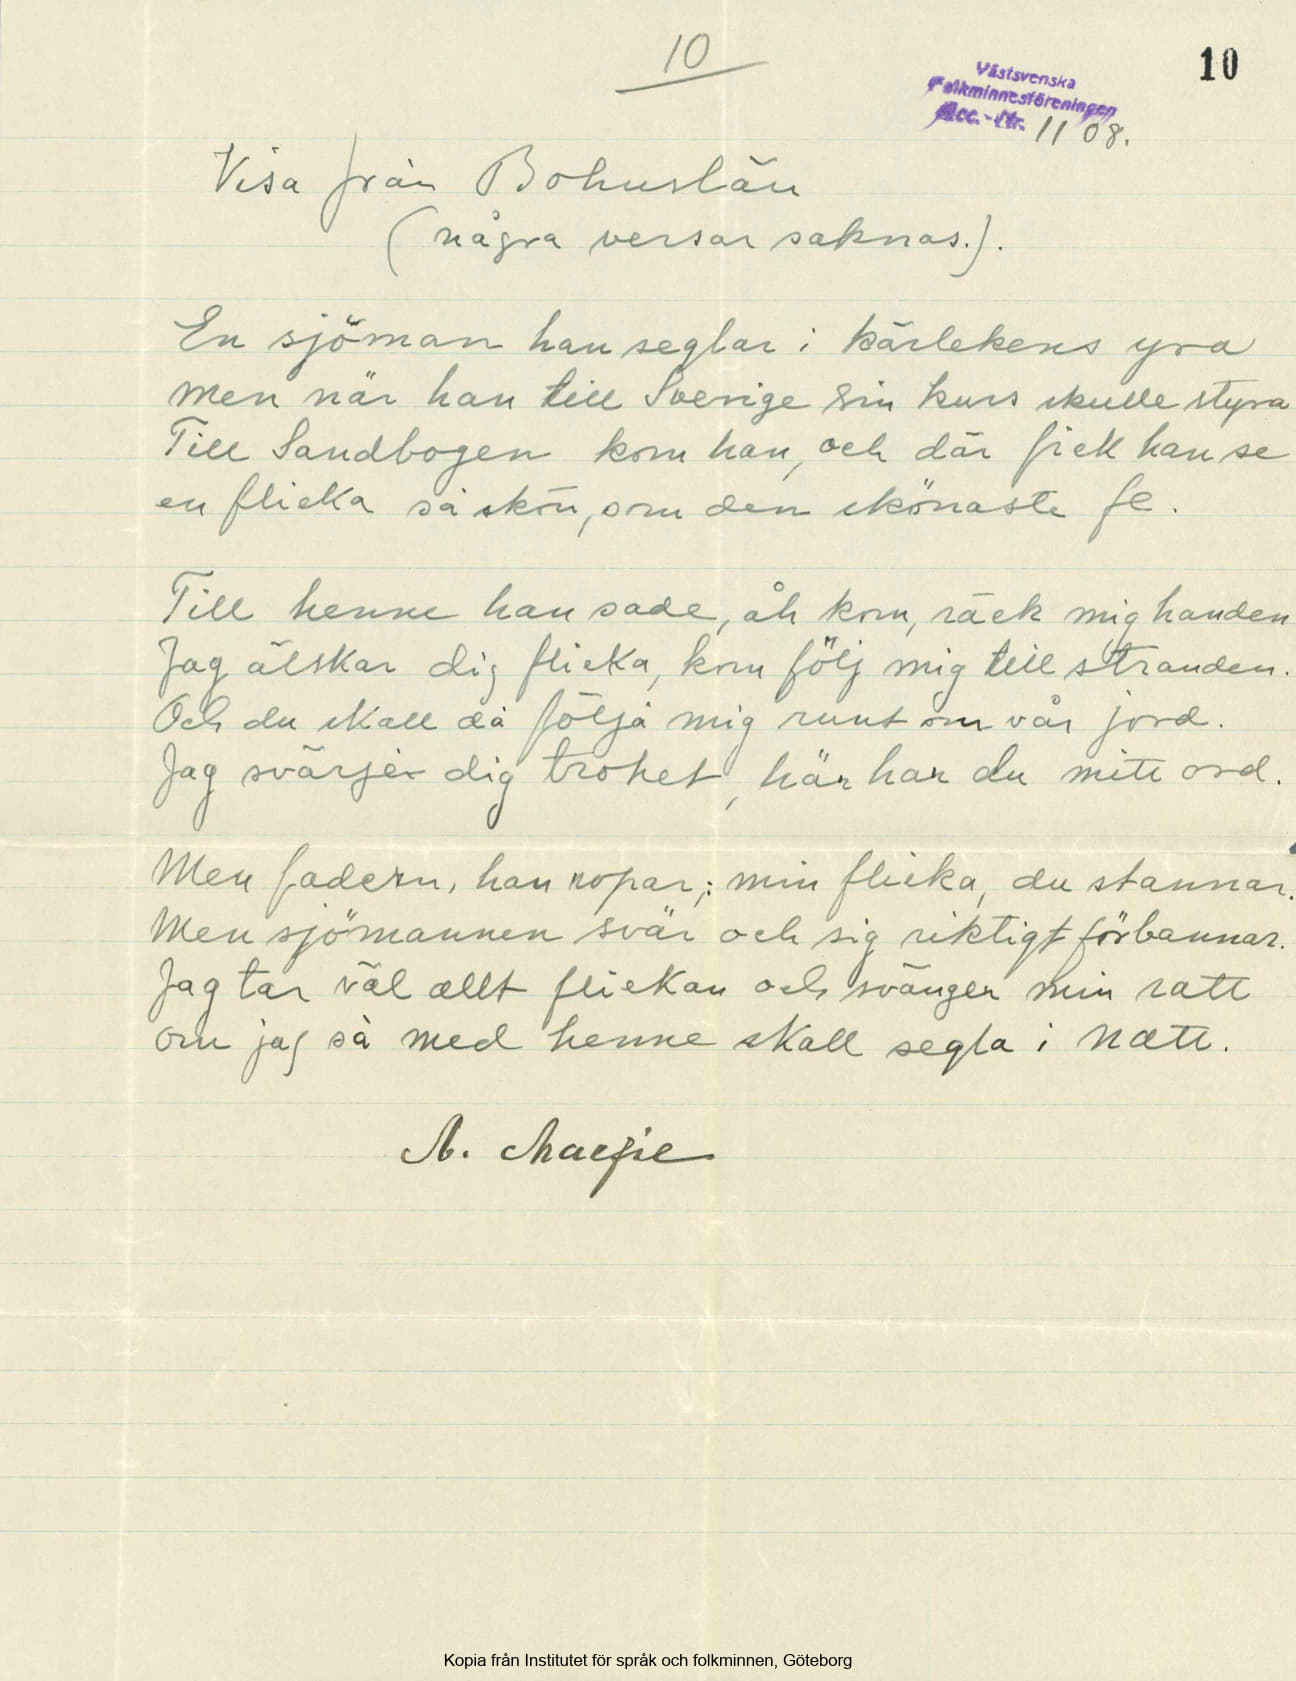 10
10
Västsvenska
Folkminnesföreningen
Acc.-Nr. 1108.
Visa från Bohuslän
(några versar saknas.).
En sjöman han seglar i kärlekens yra
men när han till Sverige sin kurs skulle styra
Till Sandbogen kom han, och där fick han se
en flicka så skön, som den skönaste fe.
Till henne han sade, åh kom, räck mig handen
Jag älskar dig flicka, kom följ mig till stranden.
Och du skall då följa mig runt om vår jord.
Jag svärjer dig trohet, här har du mitt ord.
Men fadern, han ropar,: min flicka, du stannar.
Men sjömannen svär och sig riktigt förbannar.
Jag tar väl allt flickan och svänger min ratt
om jag så med henne skall segla i natt.
A. Macfie
Kopia från Institutet för språk och folkminnen, Göteborg